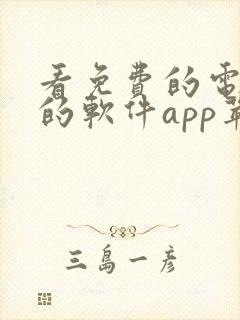 看免費的電
的軟件app
三島一彥